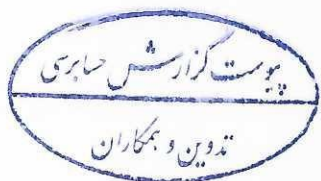 پیوست گزارش حسابرسی
تدوین و همکاران